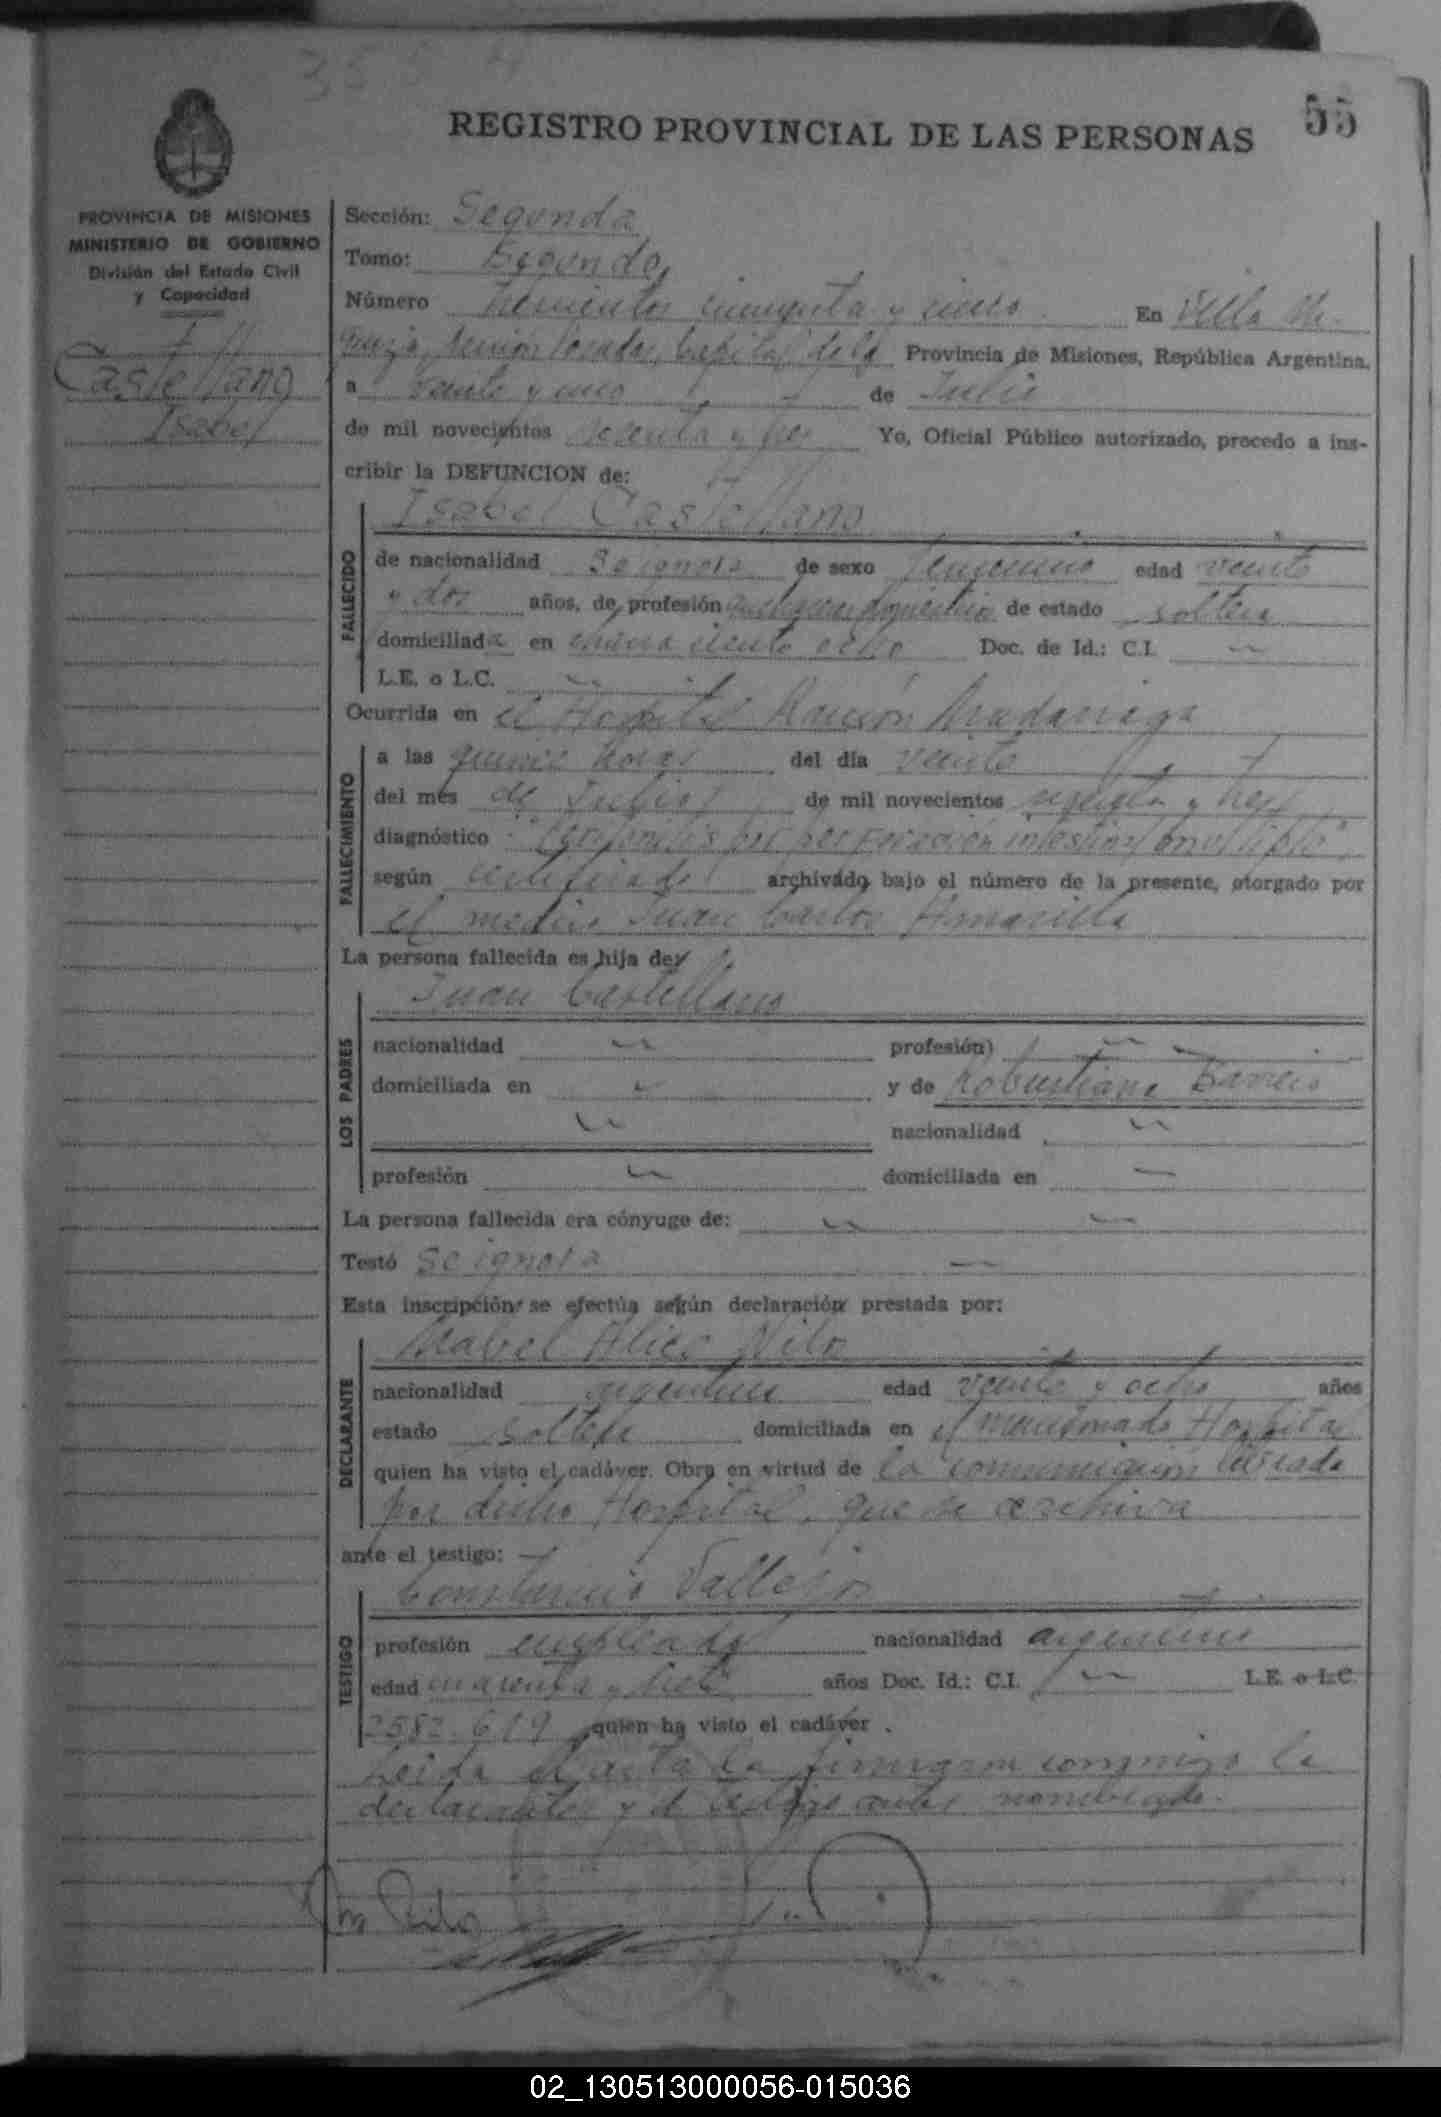 3554
55
REGISTRO PROVINCIAL DE LAS PERSONAS
PROVINCIA DE MISIONES
MINISTERIO DE GOBIERNO
División del Estado Civil
y Capacidad
Castellano
Isabel
Sección: Segunda
Tomo: Segundo
Número trescientos cincuenta y cinco En Villa
Sección Posadas, Capital de la Provincia de Misiones, República Argentina,
a veinte y uno de Julio
de mil novecientos sesenta y tres Yo, Oficial Público autorizado, procedo a ins-
cribir la DEFUNCION de:
Isabel Castellano
FALLECIDO
de nacionalidad Seignora de sexo femenino edad veinte
y dos años, de profesión quehaceres domésticos de estado soltera
domiciliada en chacra ciento ocho Doc. de Id.: C.I.
L.E. o L.C.
Ocurrida en el Hospital Ramón Madariaga
FALLECIMIENTO
a las quince horas del día veinte
del mes de Julio de mil novecientos sesenta y tres
diagnóstico "Peritonitis por perforación intestinal múltiple"
según certificado archivado bajo el número de la presente, otorgado por
el medico Juan Carlos Amarilla
La persona fallecida es hija de
Juan Castellano
LOS PADRES
nacionalidad profesión
domiciliada en y de Robustiana Barrios
nacionalidad
profesión domiciliada en
La persona fallecida era cónyuge de:
Testó Seignora
Esta inscripción se efectúa según declaración prestada por:
Mabel Alice Nilo
DECLARANTE
nacionalidad argentina edad veinte y ocho años
estado soltera domiciliada en el mencionado Hospital
quien ha visto el cadáver. Obra en virtud de la comunicación librada
por dicho Hospital, que se archiva
ante el testigo:
Constancio Vallejos
TESTIGO
profesión empleado nacionalidad argentino
edad cuarenta y siete años Doc. Id.: C.I. L.E. o L.C.
2582.619 quien ha visto el cadáver.
Leida el acta la firmaron conmigo la
declarante y el testigo antes nombrado.
02_130513000056-015036